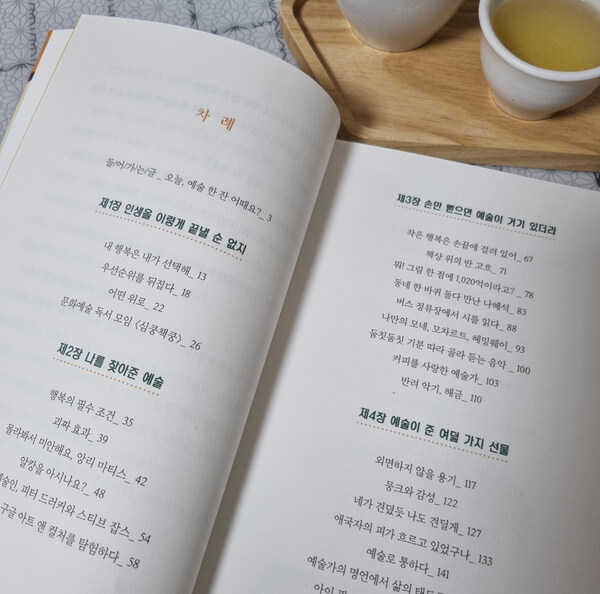 차 례
들/어/가/는/글_ 오늘, 예술 한 잔 어때요?_ 3
제1장 인생을 이렇게 끝낼 순 없지
내 행복은 내가 선택해_ 13
우선순위를 뒤집다_ 18
어떤 위로_ 22
문화예술 독서 모임 〈심쿵책쿵〉_ 26
제2장 나를 찾아준 예술
행복의 필수 조건_ 35
괴짜 효과_ 39
몰라봐서 미안해요, 앙리 마티스_ 42
알캉을 아시나요?_ 48
피터 드러커와 스티브 잡스_ 54
구글 아트 앤 컬처를 탐험하다_ 58
제3장 손만 뻗으면 예술이 거기 있더라
작은 행복은 손끝에 걸려 있어_ 67
책상 위의 반 고흐_ 71
뭐! 그림 한 점에 1,020억이라고?_ 78
동네 한 바퀴 돌다 만난 나혜석_ 83
버스 정류장에서 시를 읽다_ 88
나만의 모네, 모차르트, 헤밍웨이_ 93
둠칫둠칫 기분 따라 골라 듣는 음악_ 100
커피를 사랑한 예술가_ 103
반려 악기, 해금_ 110
제4장 예술이 준 여덟 가지 선물
외면하지 않을 용기_ 117
뭉크와 감성_ 122
네가 견뎠듯 나도 견딜게_ 127
애국자의 피가 흐르고 있었구나_ 133
예술로 통하다_ 141
예술가의 명언에서 삶의